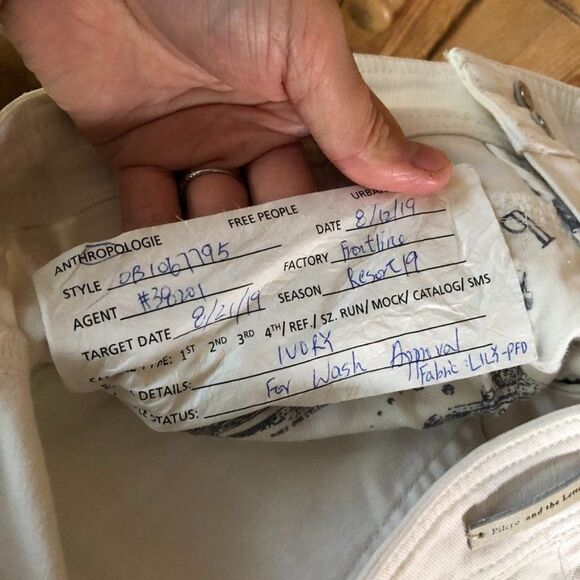 ANTHROPOLOGIE FREE PEOPLE URBAN
STYLE OB1067795 DATE 8/12/19
AGENT #39201 FACTORY Frontline
TARGET DATE 8/21/19 SEASON Resort 19
TYPE: 1ST 2ND 3RD 4TH/ REF./ SZ. RUN/ MOCK/ CATALOG/ SMS
DETAILS: IVORY
STATUS: For Wash Approval
Fabric : LILY-PFD
Pilcro and the Lette